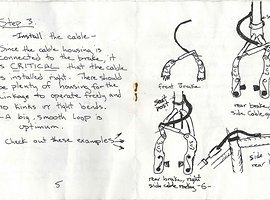 Step 3
-Install the cable-
Since the cable housing is
connected to the brake, it
is CRITICAL that the cable
is installed right. There should
be plenty of housing for the
linkage to operate freely and
no kinks or tight bends.
-A big, smooth loop is
optimum.
Check out these examples→
5
front brake
seat
post
rear brake,
side cable
rear brake, right
side cable routing -6-
in
rear